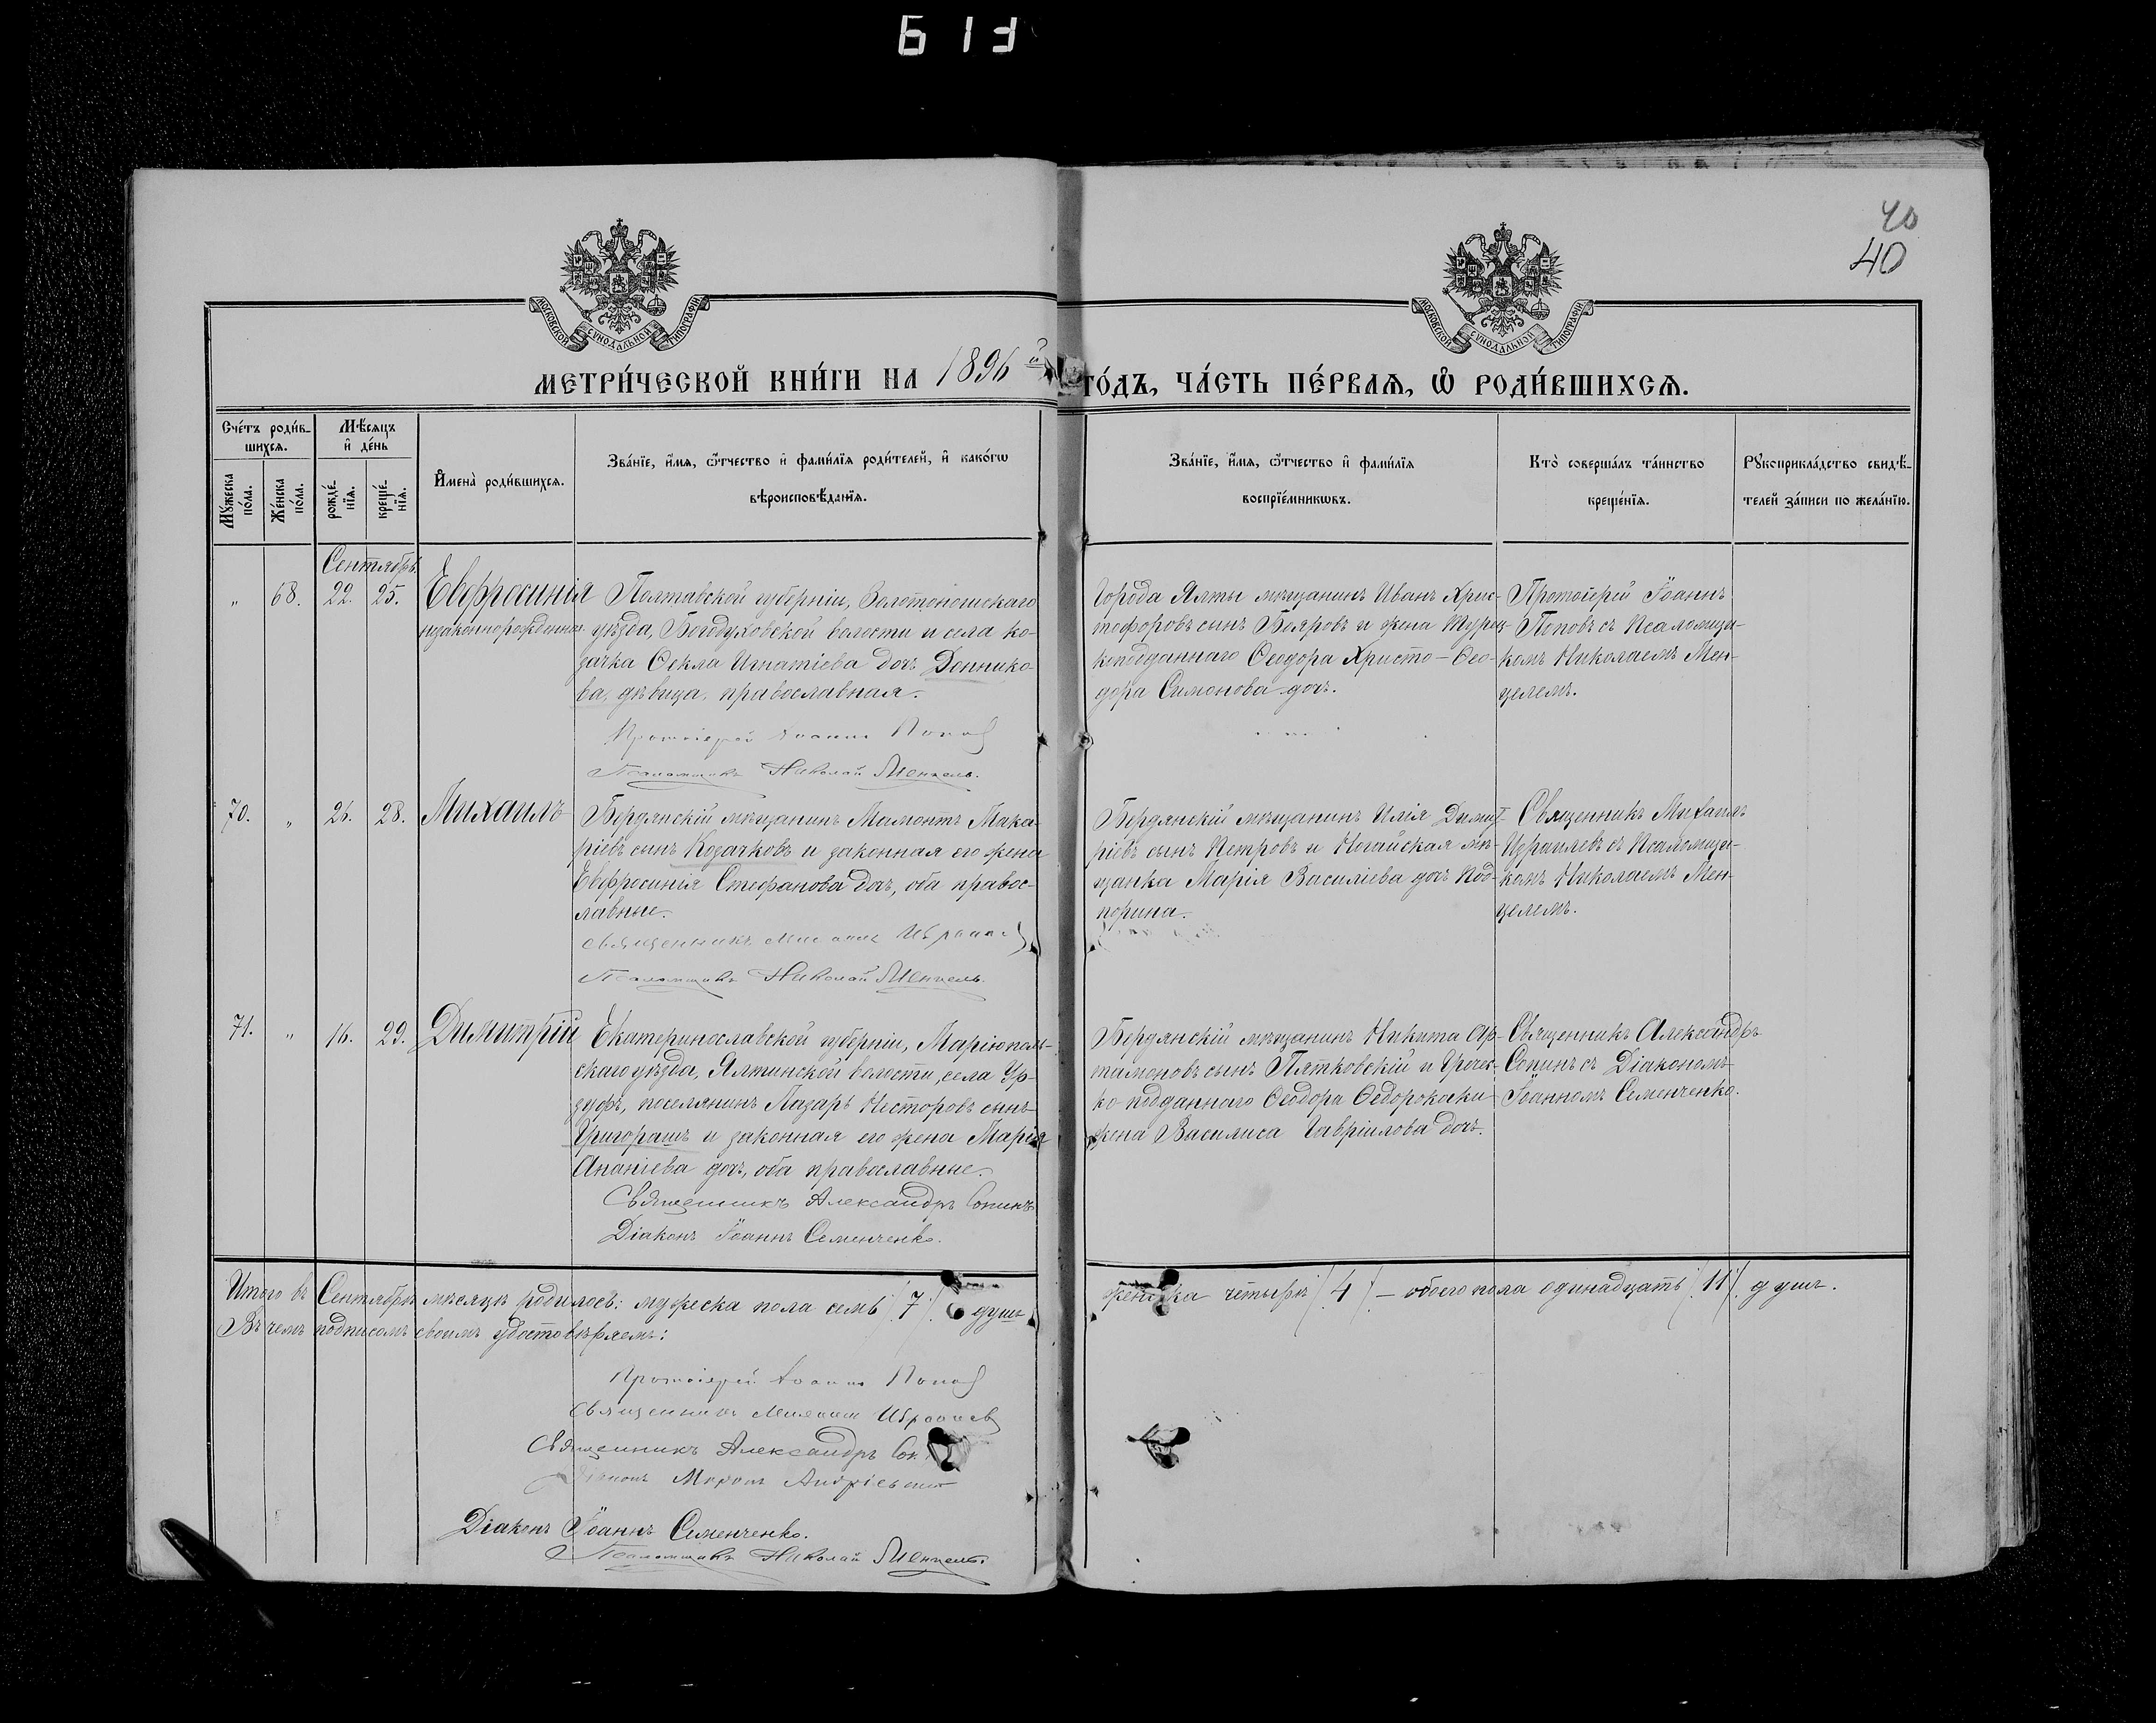 613
40
40
МОСКОВСКОЙ СУНОДАЛЬНОЙ ТИПОГРАФІИ
МОСКОВСКОЙ СУНОДАЛЬНОЙ ТИПОГРАФІИ
МЕТРИ́ЧЕСКОЙ КНИ́ГИ НА 1896 й ГО́ДЪ, ЧА́СТЬ ПЕ́РВАѦ, Ѡ҆ РОДИ́ВШИХСѦ.
Сче́тъ роди́в-
шихсѧ.
Мѣ́сяцъ
и҆ де́нь
Мꙋ́жеска
по́ла.
Же́нска
по́ла.
рожде́-
нїѧ.
креще́-
нїѧ.
И҆мена̀ роди́вшихсѧ.
Зва́нїе, и҆́мѧ, ѻ҆́тчество и҆ фами́лїѧ роди́телей, и҆ како́гѡ
вѣроисповѣ́данїѧ.
Зва́нїе, и҆́мѧ, ѻ҆́тчество и҆ фами́лїѧ
воспрїе́мникѡвъ.
Кто̀ соверша́лъ та́инство
креще́нїѧ.
Рꙋкоприкла́дство свидѣ́-
телей за́писи по жела́нїю.
Сентябрь
" 68. 22. 25. Евфросинія
незаконнорожденная
Полтавской губерніи, Золотоношскаго
уѣзда, Богодуховской волости и села ко-
зачка Ѳекла Игнатіева дочь Доннико-
ва, дѣвица, православная.
Протоіерей Іоаннъ Попов
Псаломщикъ Николай Менцель.
Города Ялты мѣщанинъ Иванъ Хрис-
тофоровъ сынъ Бояровъ и жена Турец-
коподданнаго Ѳеодора Христо-Ѳео-
дора Симонова дочь.
Протоіерей Іоаннъ
Поповъ съ Псаломщи-
комъ Николаемъ Мен-
целемъ.
70. " 26. 28. Михаилъ
Бердянскій мѣщанинъ Мамонтъ Мака-
ріевъ сынъ Козачковъ и законная его жена
Евфросинія Стефанова дочь, оба правос-
лавные.
Священникъ Михаилъ Израилев
Псаломщикъ Николай Менцель.
Бердянскій мѣщанинъ Илія Димит-
ріевъ сынъ Петровъ и Ногайская мѣ-
щанка Марія Василіева дочь Под-
порина.
Священникъ Михаилъ
Израилевъ съ Псаломщи-
комъ Николаемъ Мен-
целемъ.
71. " 16. 29. Димитрій
Екатеринославской губерніи, Маріуполь-
скаго уѣзда, Ялтинской волости, села Ур-
зуфъ, поселянинъ Лазарь Несторовъ сынъ
Григорашъ и законная его жена Марія
Ананіева дочь, оба православные.
Священникъ Александръ Сопинъ
Діаконъ Іоаннъ Семенченко.
Бердянскій мѣщанинъ Никита Ар-
тамоновъ сынъ Пятковскій и Гречес-
ко-подданнаго Ѳеодора Ѳедорокаки
жена Василиса Гавріилова дочь.
Священникъ Александръ
Сопинъ съ Діакономъ
Іоанномъ Семенченко.
Итого въ Сентябрѣ мѣсяцѣ родилось: мужеска пола семь (7) душъ женска четыре (4) – обоего пола одинадцать (11) душъ.
Въ чемъ подписомъ своимъ удостовѣряемъ:
Протоіерей Іоаннъ Попов
Священникъ Михаилъ Израилев
Священникъ Александръ Соп
Діаконъ Андріевскій
Діаконъ Іоаннъ Семенченко.
Псаломщикъ Николай Менцель.